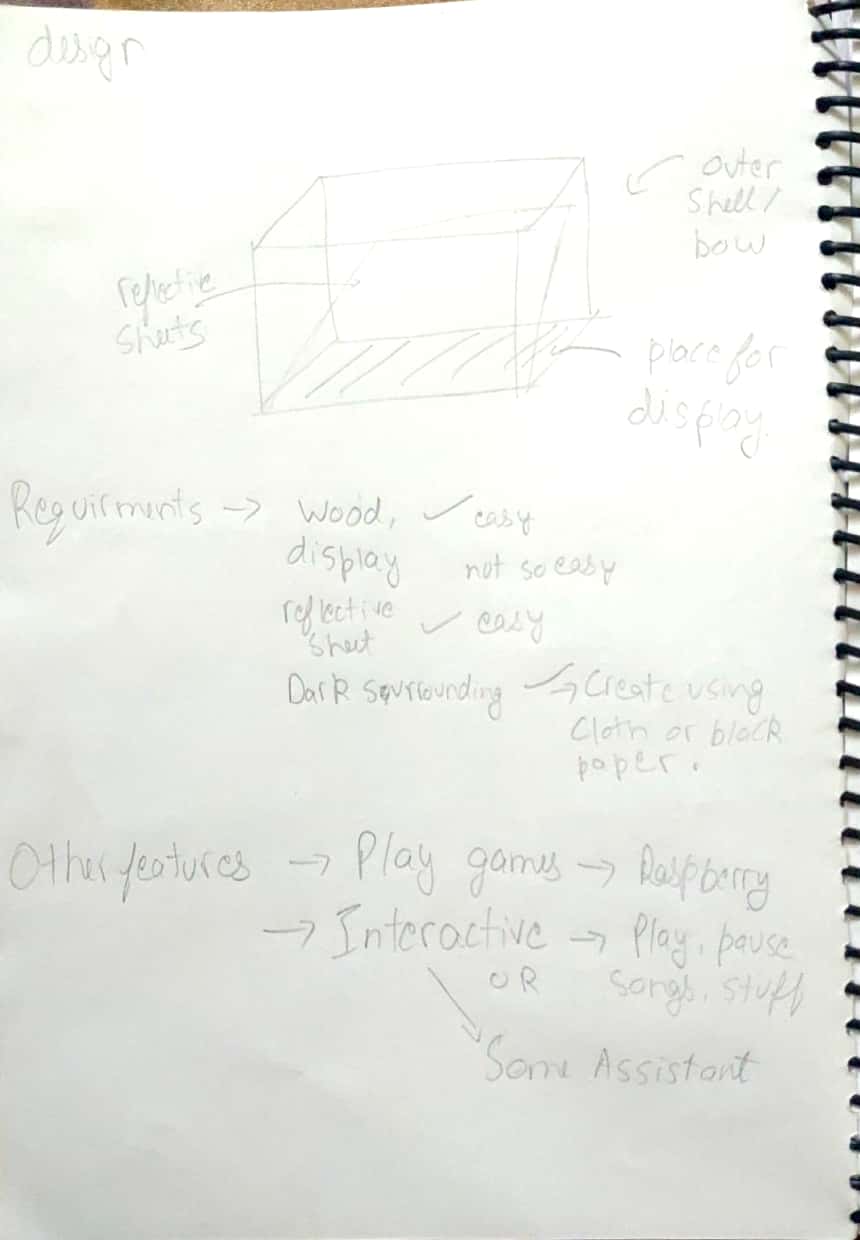 design
outer
shell /
bow
reflective
sheets
place for
display.
Requirments → wood, ✓ easy
display not so easy
reflective
sheet ✓ easy
Dark sourrounding → Create using
cloth or black
paper.
Other features → Play games → Raspberry
→ Interactive → Play, pause
OR songs, stuff
Some Assistant